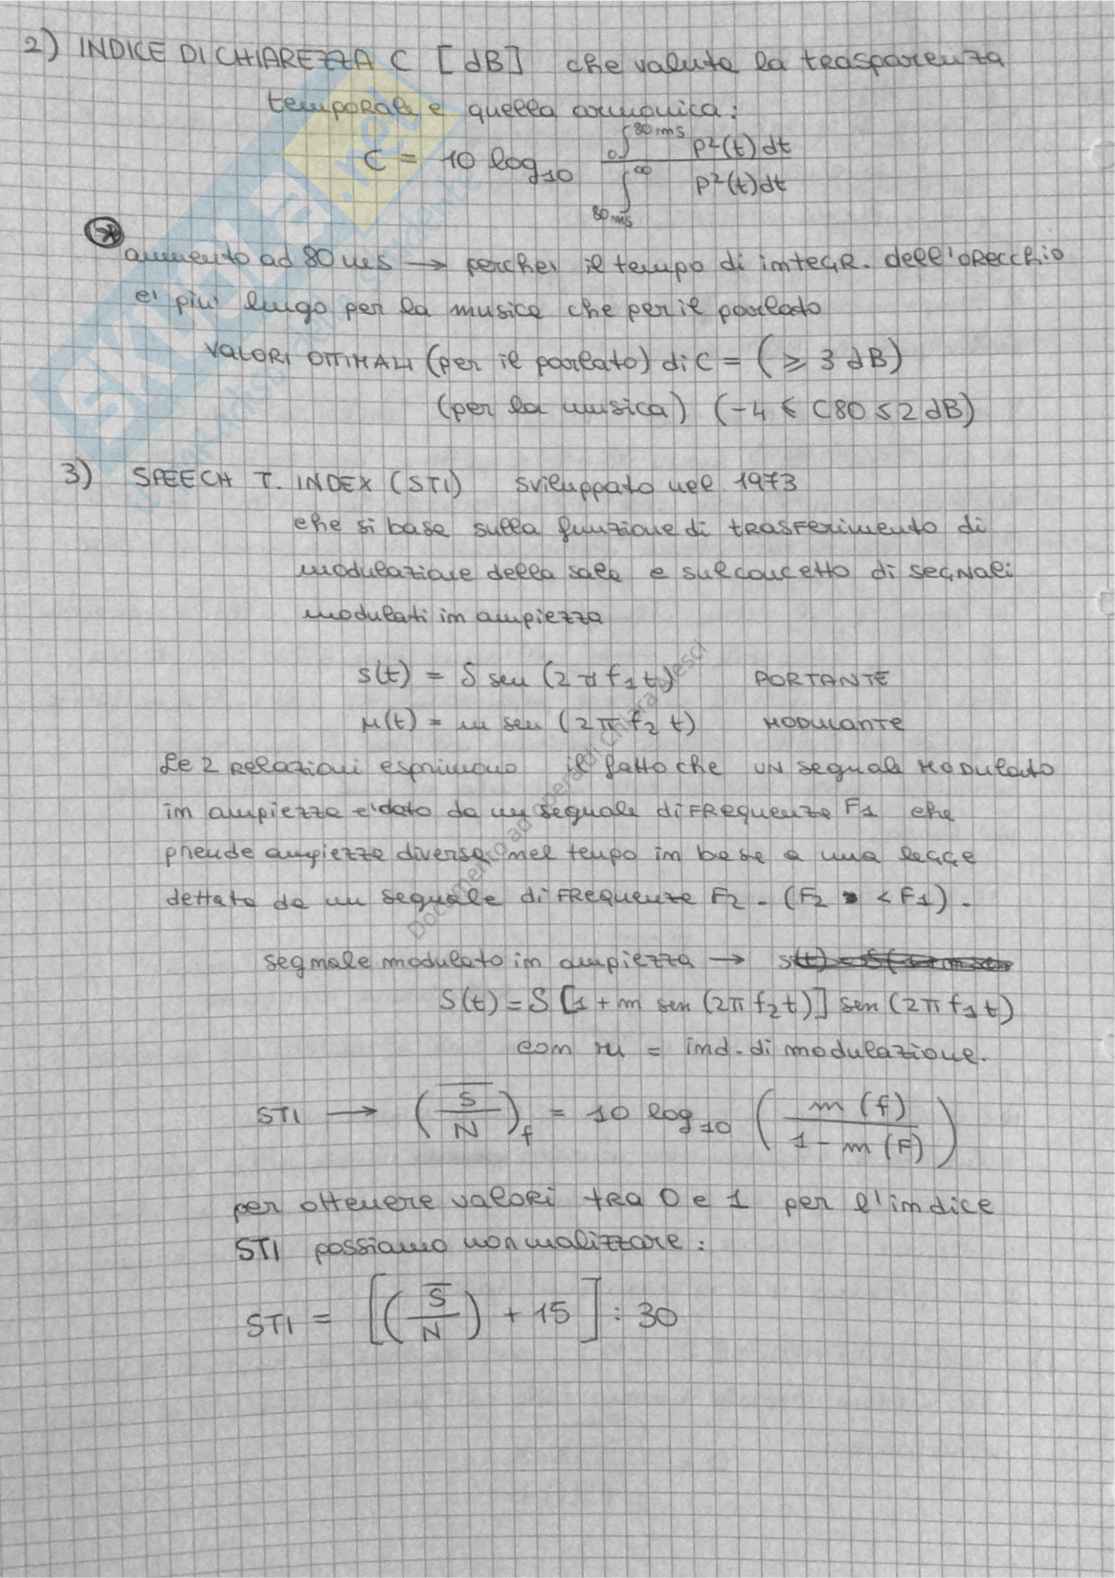 2) INDICE DI CHIAREZZA C [dB] che valuta la trasparenza
temporale e quella armonica:
C = 10 log10 ∫0^80ms p²(t)dt / ∫80ms^∞ p²(t)dt
* aumento ad 80 ms → perche' il tempo di integr. dell'orecchio
e' piu' lungo per la musica che per il parlato
VALORI OTTIMALI (per il parlato) di C = (≥ 3 dB)
(per la musica) (-4 ≤ C80 ≤ 2 dB)
3) SPEECH T. INDEX (STI) sviluppato nel 1973
che si basa sulla funzione di trasferimento di
modulazione della sala e sul concetto di segnali
modulati in ampiezza
s(t) = S sen (2π f1 t) PORTANTE
μ(t) = m sen (2π f2 t) MODULANTE
Le 2 relazioni esprimono il fatto che UN segnale modulato
in ampiezza e' dato da un segnale di FREquenza F1 che
prende ampiezze diverse nel tempo in base a una legge
dettata da un segnale di FREquenza F2 - (F2 < F1) -
segnale modulato in ampiezza →
S(t) = S [1 + m sen (2π f2 t)] sen (2π f1 t)
con m = ind. di modulazione.
STI → (S̅/N)f = 10 log10 ( m (f) / 1 - m (F) )
per ottenere valori tra 0 e 1 per l'indice
STI possiamo normalizzare:
STI = [(S̅/N) + 15] : 30
SKUOLA.net